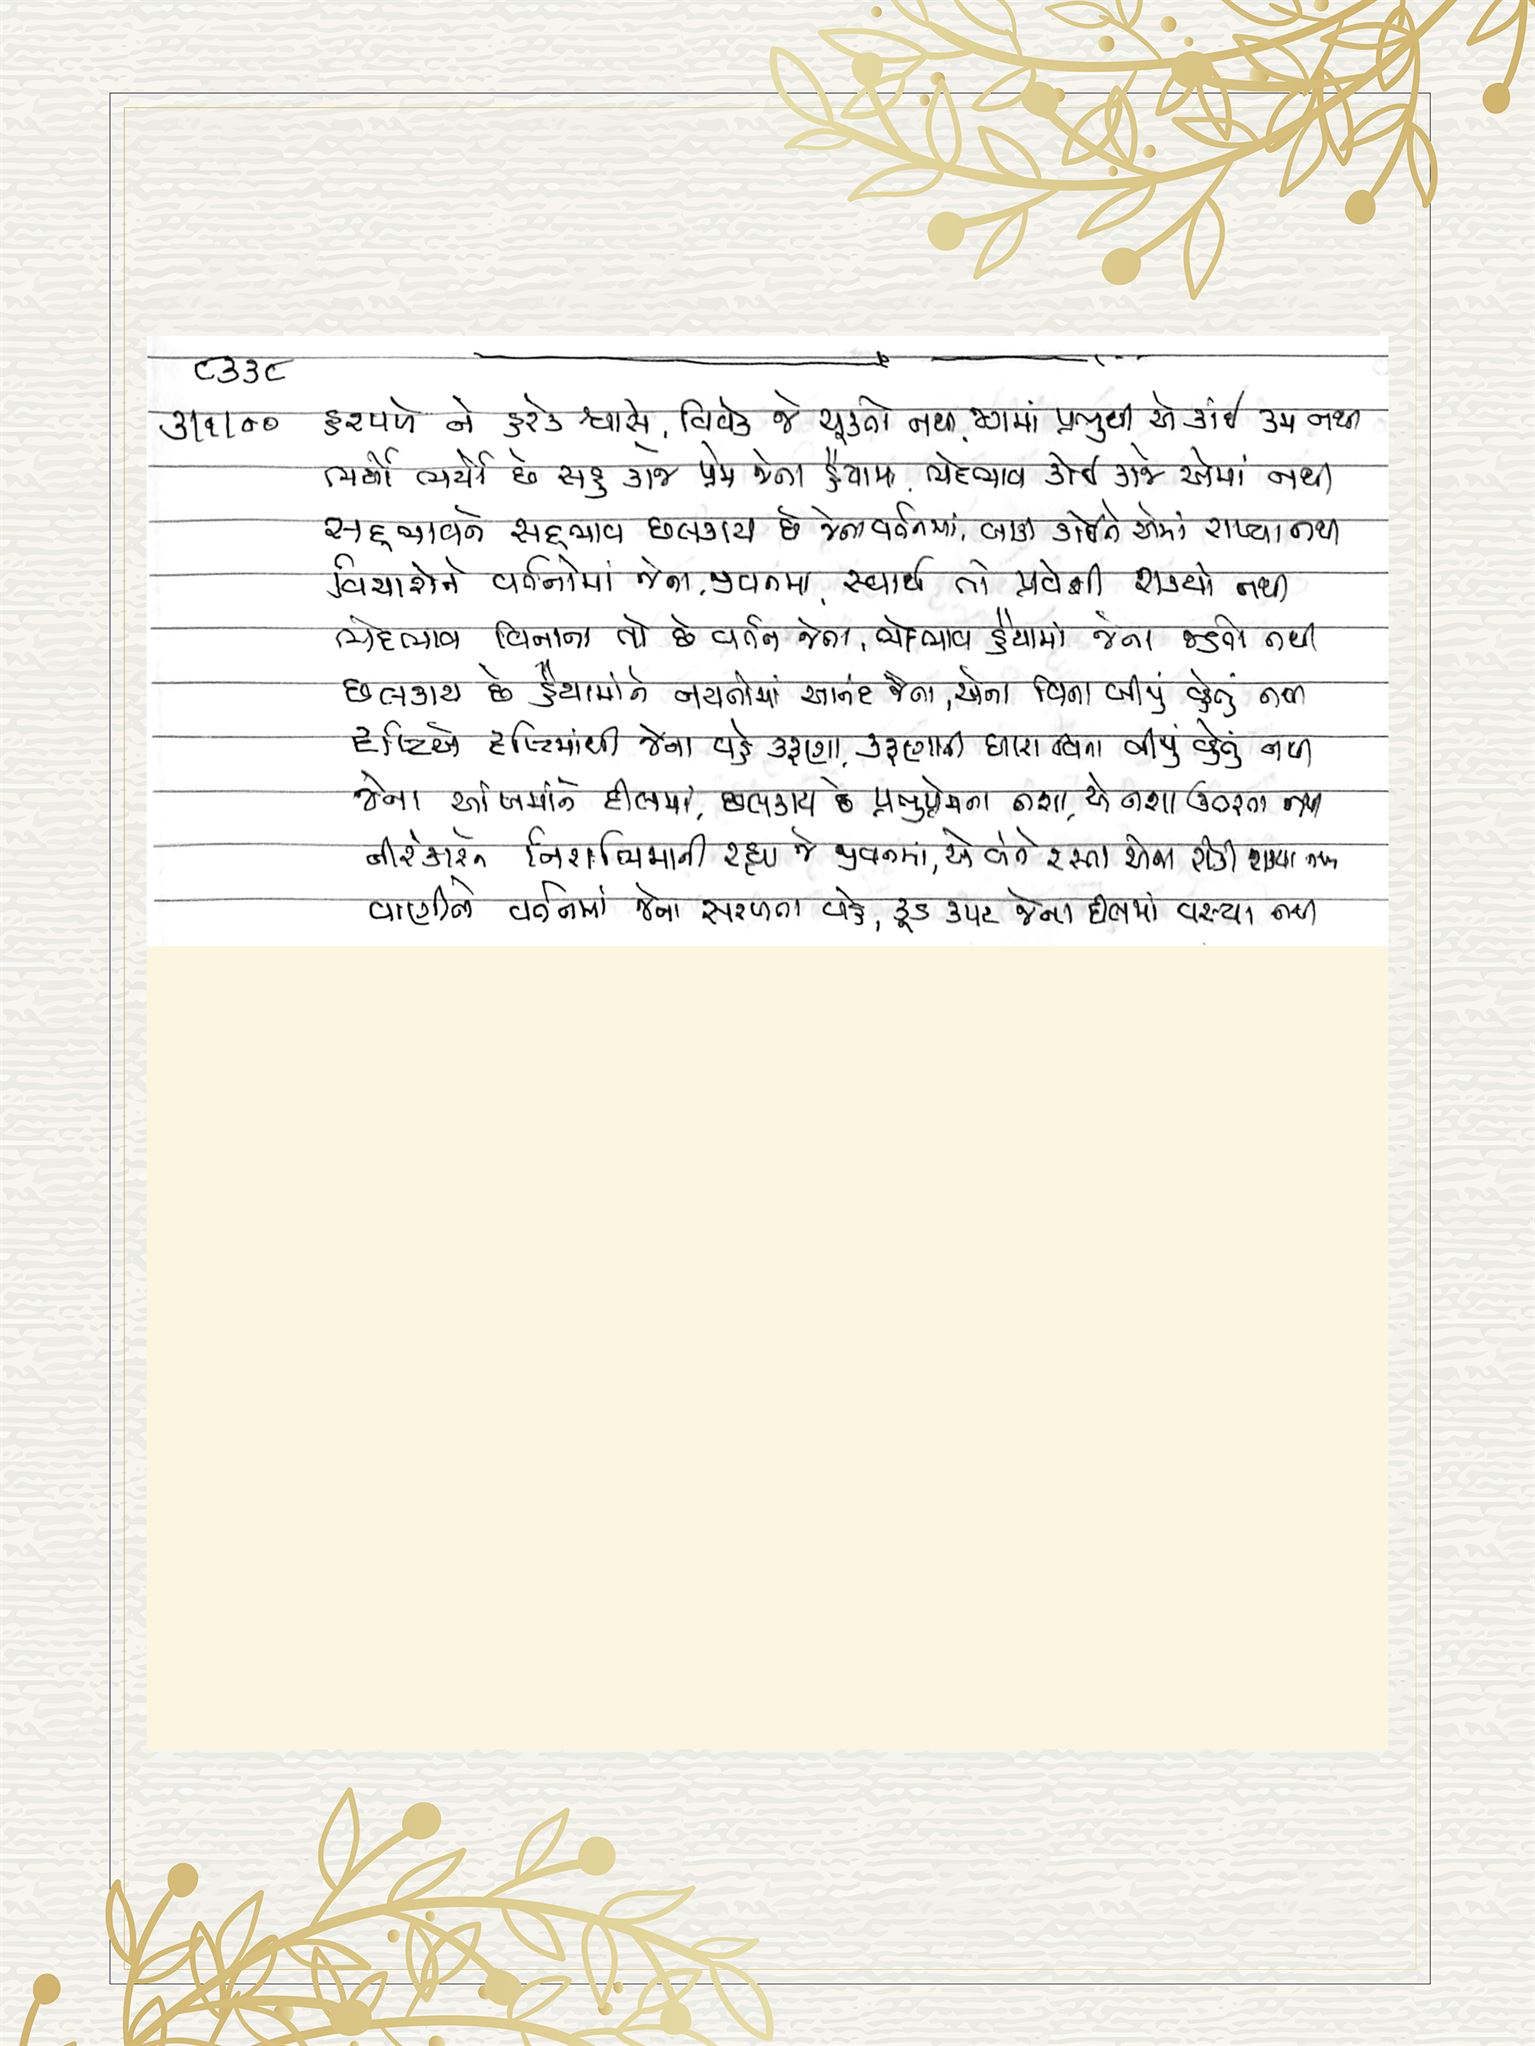 ૮૩૩૮
૩/૧/૦૦ હરપળે ને હરેક શ્વાસે, વિવેક જે ચૂકતો નથી, જગમાં પ્રભુથી એ કાંઈ કમ નથી
ભર્યો ભર્યો છે સહુ કાજે પ્રેમ જેના હૈયામાં, ભેદભાવ કોઈ કાજે એમાં નથી
સદ્દભાવને સદ્દભાવ છલકાય છે જેના વર્તનમાં, બાકી કોઈને એમાં રાખ્યા નથી
વિચારોને વર્તનોમાં જેના, જીવનમાં, સ્વાર્થ તો પ્રવેશી શક્યો નથી
ભેદભાવ વિનાના તો છે વર્તન જેના, ભેદભાવ હૈયામાં જેના જડતો નથી
છલકાય છે હૈયામાંને નયનોમાં આનંદ જેના, એના વિના બીજું વ્હેતું નથી
દૃષ્ટિએ દૃષ્ટિમાંથી જેના વહે કરૂણા, કરૂણાની ધારા વિના બીજું વ્હેતું નથી
જેના આંખમાંને દીલમાં, છલકાય છે પ્રભુપ્રેમના નશા, એ નશા ઉતરતા નથી
નિરાભિમાની રહ્યા જે જીવનમાં, એ રસ્તા એના રોકી શક્યા નથી
વાણીને વર્તનમાં જેના સરળતા વહે, કૂડ કપટ જેના દીલમાં વસ્યા નથી